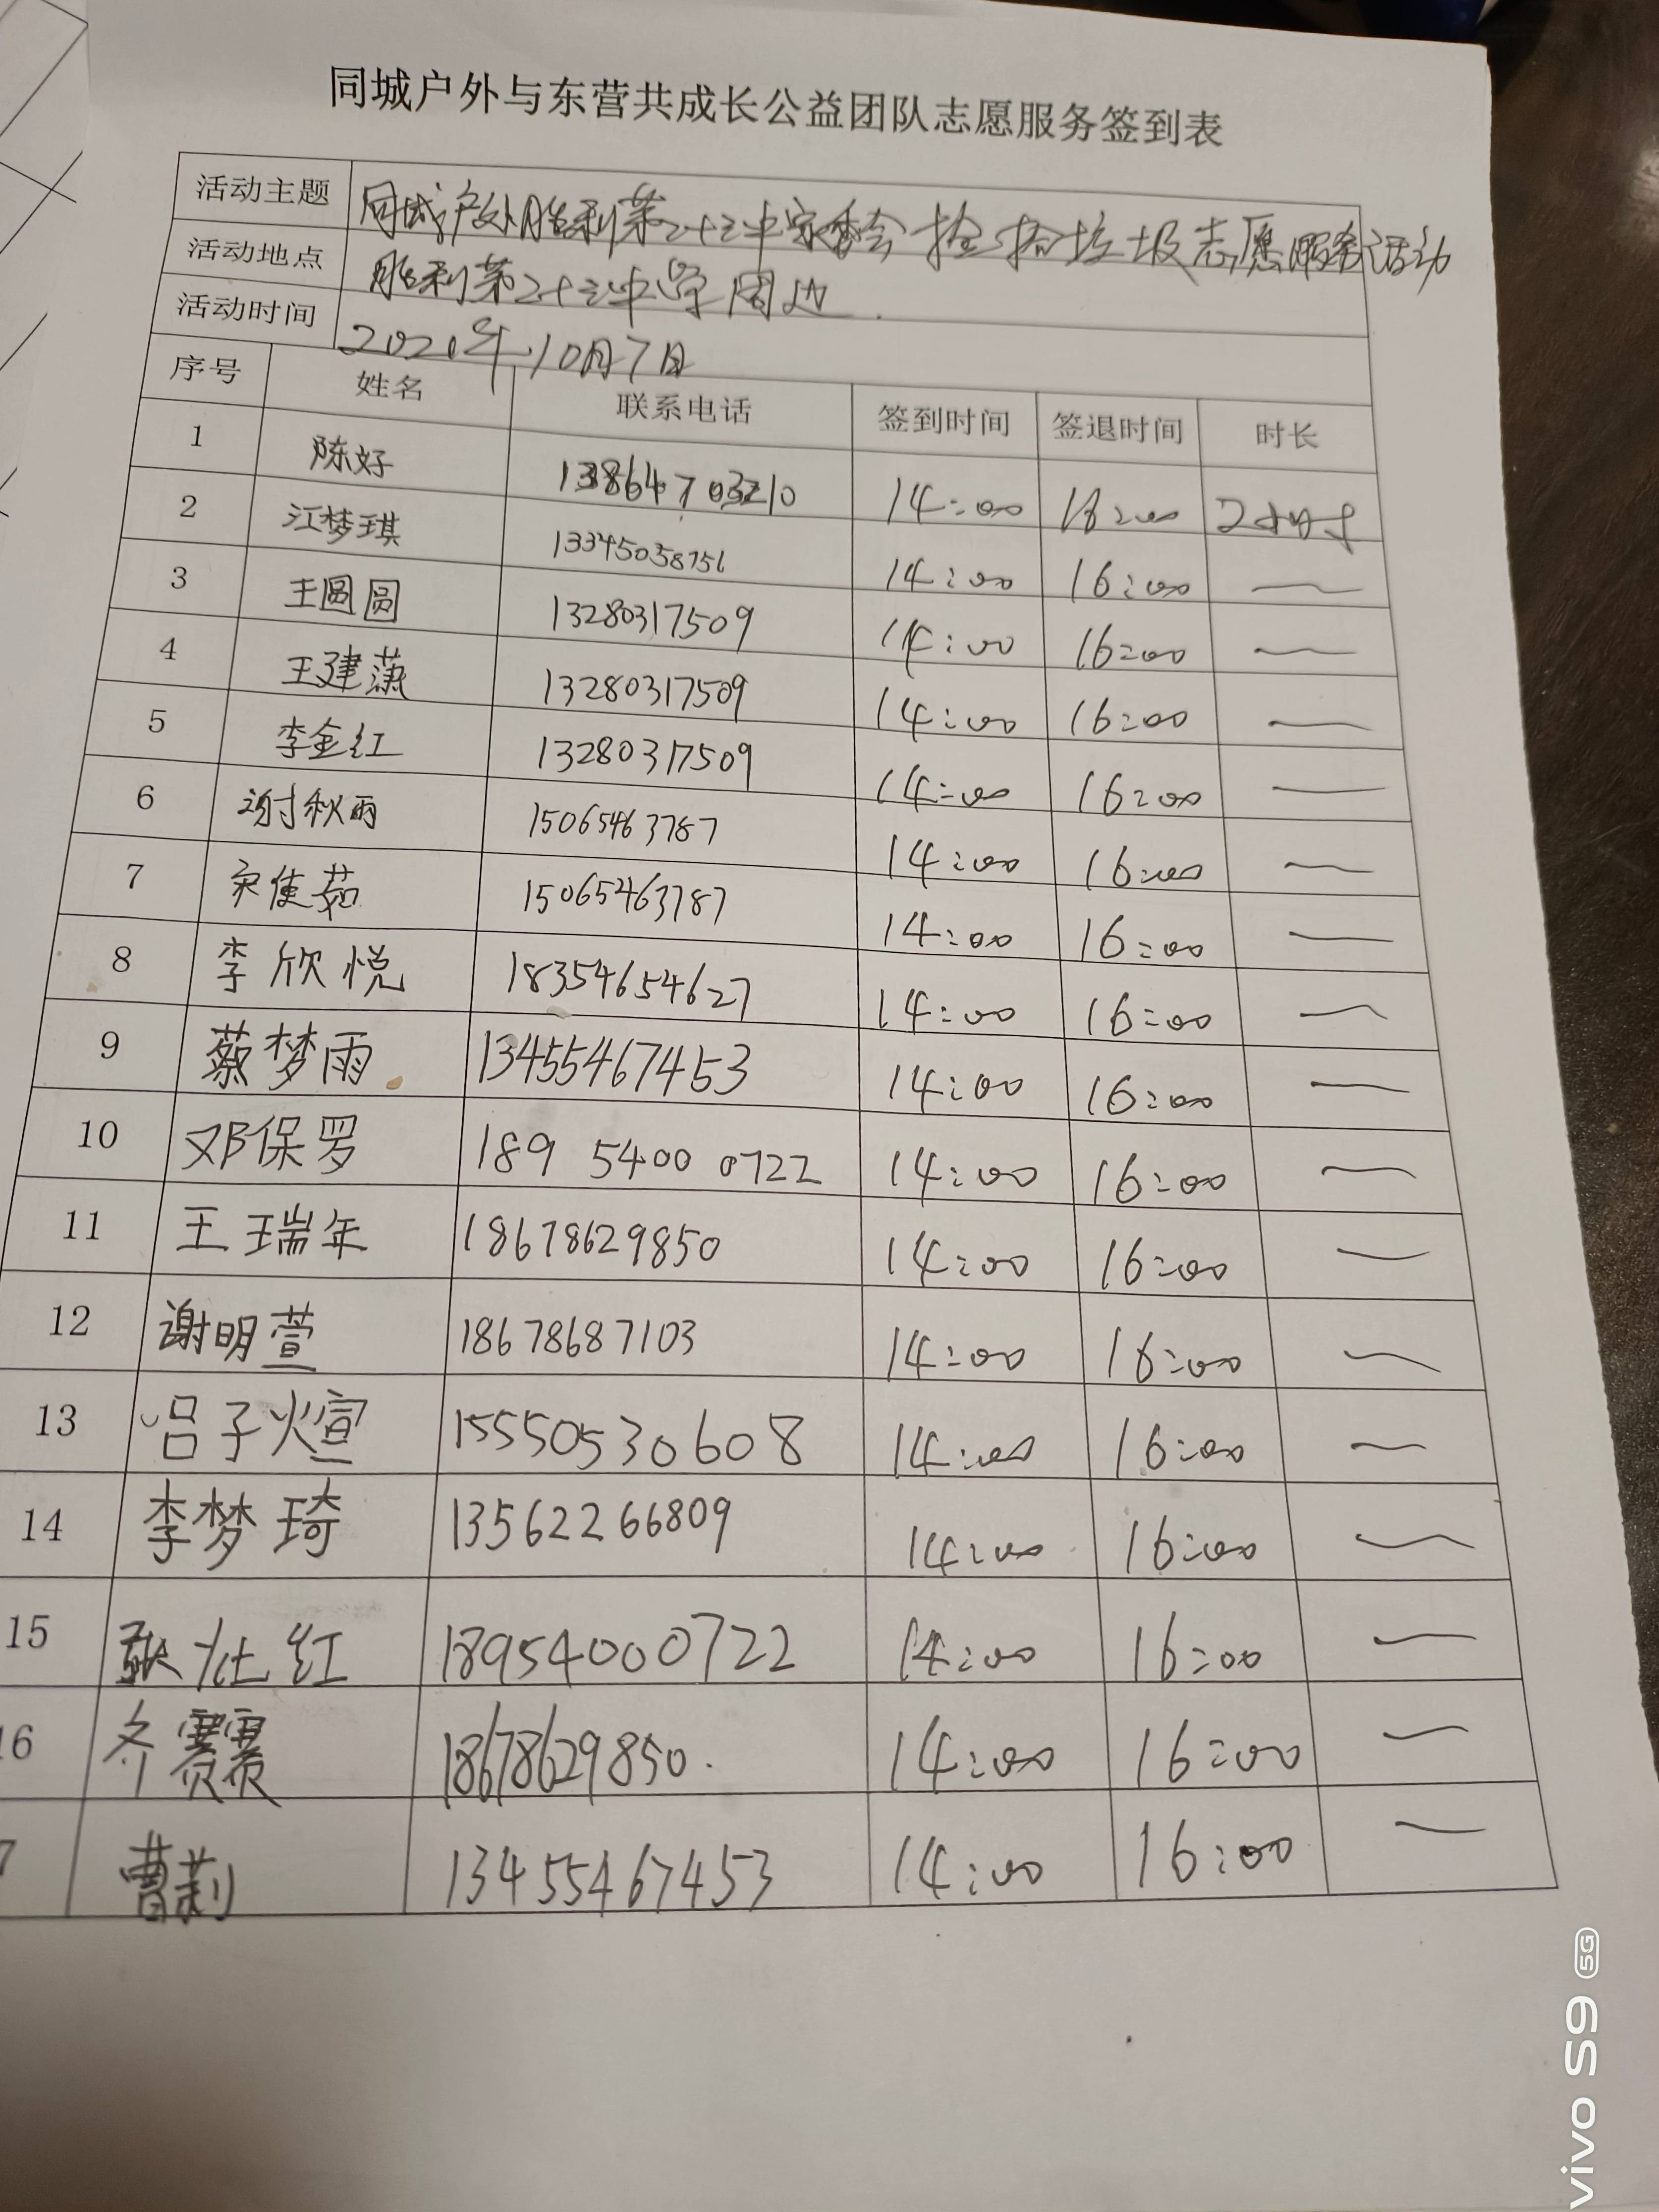 同城户外与东营共成长公益团队志愿服务签到表
活动主题 同城户外胜利第二十三中家委会捡拾垃圾志愿服务活动
活动地点 胜利第二十三中学周边
活动时间 2021年10月7日
序号 姓名 联系电话 签到时间 签退时间 时长
1 陈好 13864703210 14:00 16:00 2小时
2 江梦琪 13345058756 14:00 16:00
3 王圆圆 13280317509 14:00 16:00
4 王建 13280317509 14:00 16:00
5 李金红 13280317509 14:00 16:00
6 谢秋雨 15065463787 14:00 16:00
7 宋佳茹 15065463787 14:00 16:00
8 李欣悦 18354654627 14:00 16:00
9 蔡梦雨 13455467453 14:00 16:00
10 邓保罗 189 5400 0722 14:00 16:00
11 王瑞年 18678629850 14:00 16:00
12 谢明萱 18678687103 14:00 16:00
13 吕子煊 15550530608 14:00 16:00
14 李梦琦 13562266809 14:00 16:00
15 红 18954000722 14:00 16:00
16 齐赛赛 18678629850. 14:00 16:00
7 曹莉 13455467453 14:00 16:00
vivo S9 5G